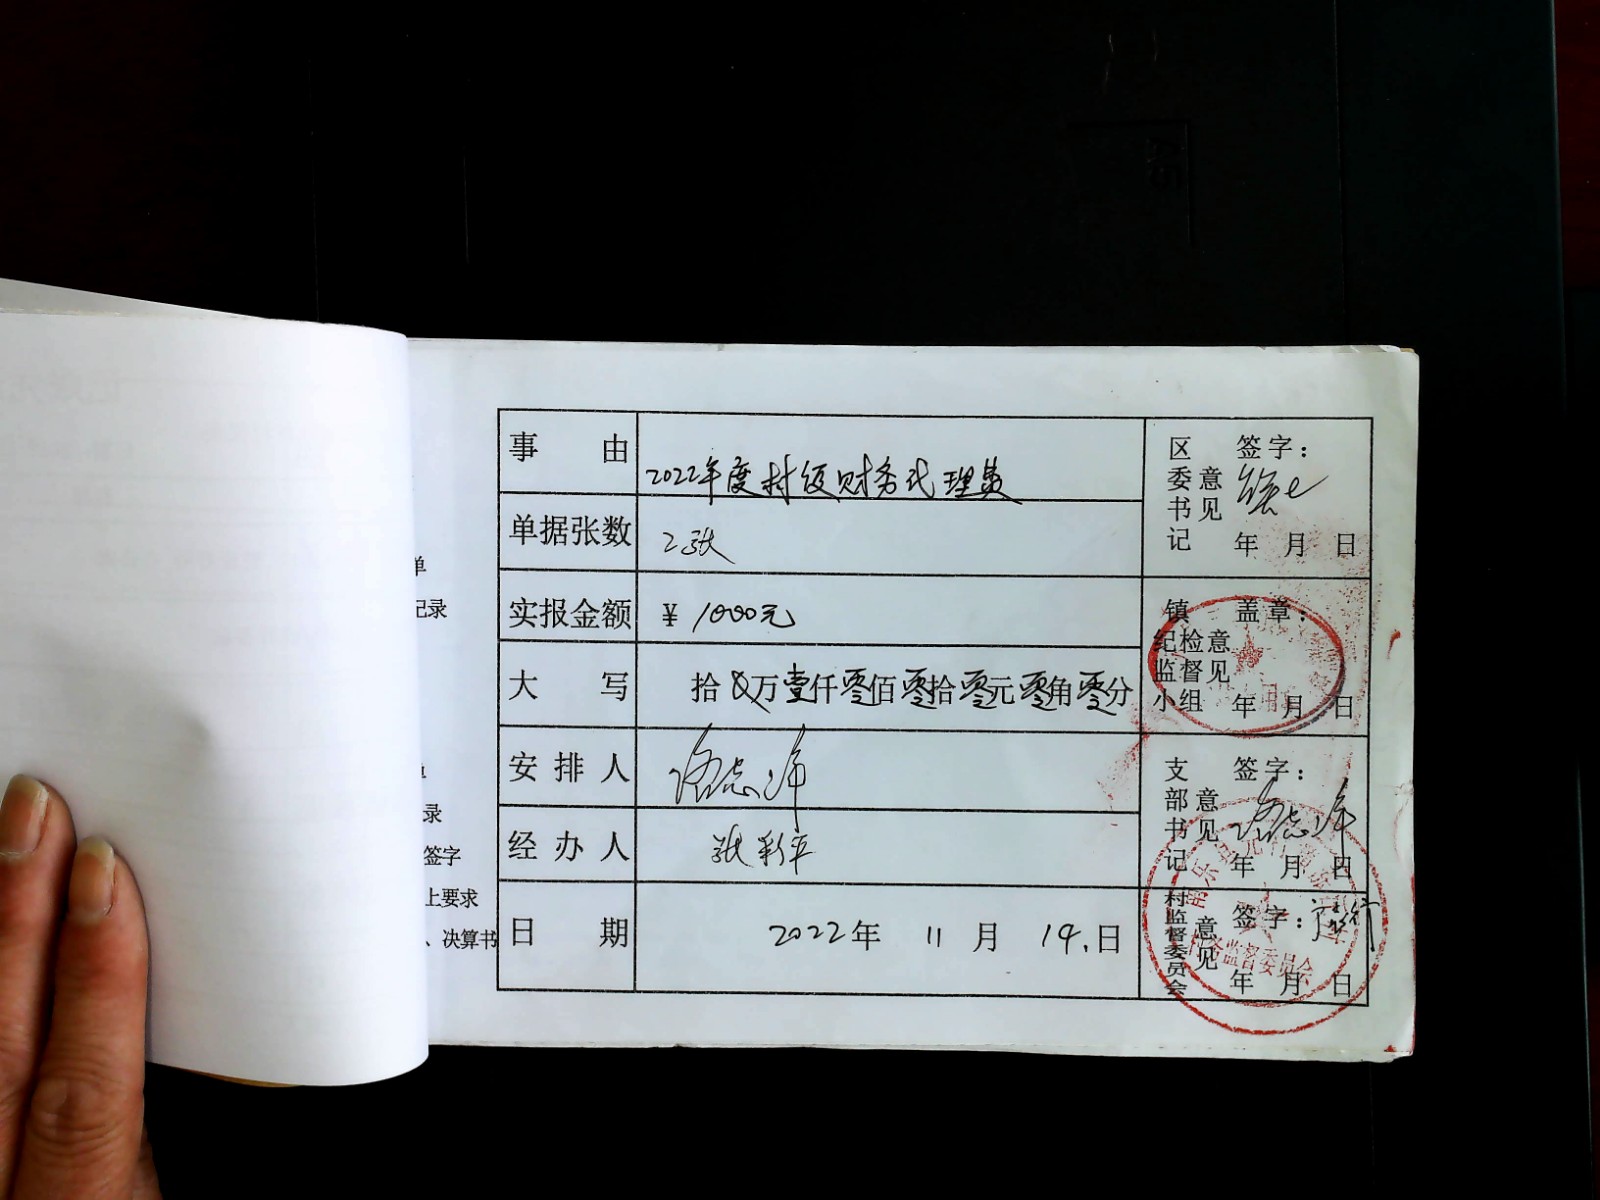 事由 2022年度村级财务代理费
单据张数 2张
实报金额 ¥ 1000元
大写 拾 万壹仟零佰零拾零元零角零分
安排人
经办人 张彩平
日期 2022年 11 月 14.日
区委书记意见 签字：
年 月 日
镇纪检监督小组意见 盖章：
年 月 日
支部书记意见 签字：
年 月 日
村监督委员会意见 签字：
年 月 日
监督委员会
单
记录
录
签字
上要求
、决算书